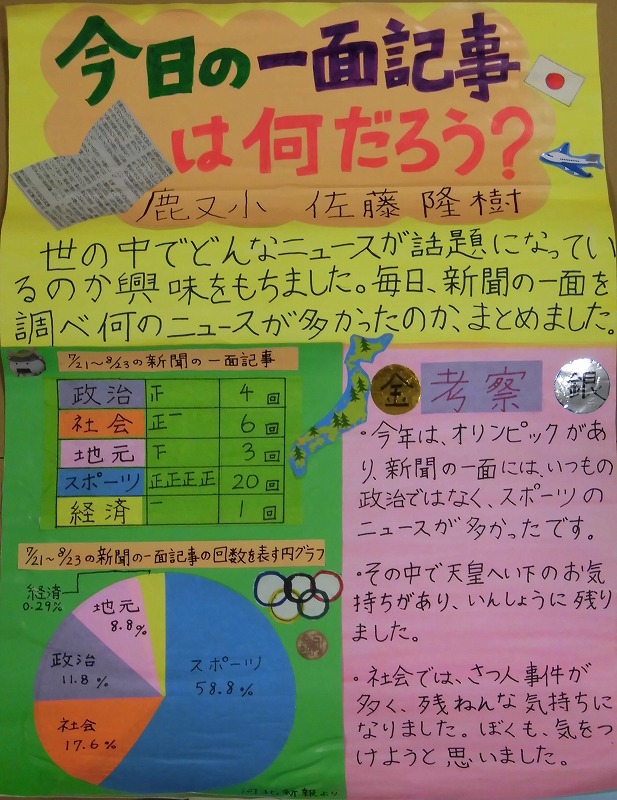 今日の一面記事
は何だろう?
鹿又小 佐藤 隆樹
世の中でどんなニュースが話題になってい
るのか興味をもちました。毎日、新聞の一面を
調べ何のニュースが多かったのか、まとめました。
7/21~8/23の新聞の一面記事
政治 正 4回
社会 正一 6回
地元 下 3回
スポーツ 正正正正 20回
経済 一 1回
7/21~8/23の新聞の一面記事の回数を表す円グラフ
経済
0.29%
地元
8.8%
政治
11.8%
社会
17.6%
スポーツ
58.8%
銅
金 考察 銀
・今年は、オリンピックがあ
り、新聞の一面には、いつもの
政治ではなく、スポーツの
ニュースが多かったです。
・その中で天皇へい下のお気
持ちがあり、いんしょうに残り
ました。
・社会では、さつ人事件が
多く、残ねんな気持ちに
なりました。ぼくも、気をつ
けようと思いました。
新報より